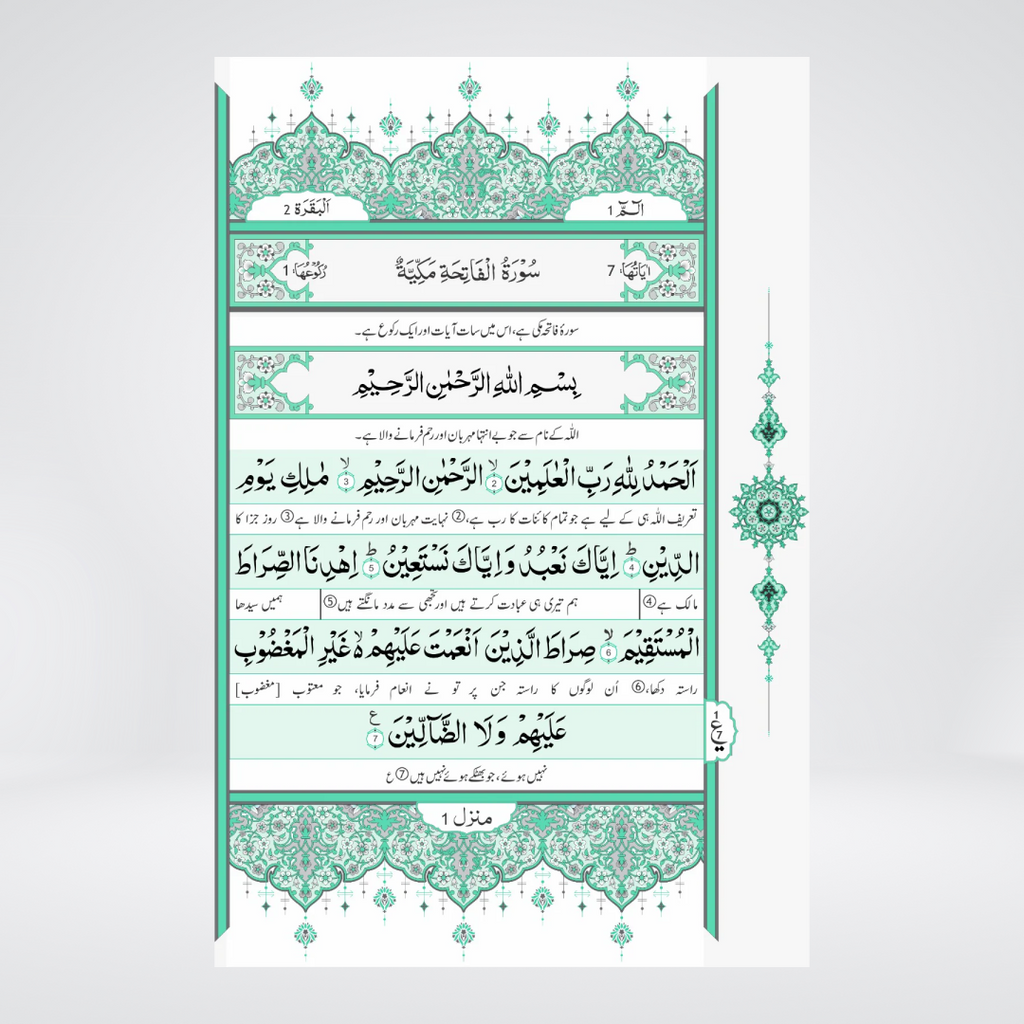 الٓمّٓ 1
اَلْبَقَرَة 2
اٰیَاتُهَا، 7
سُوْرَةُ الْفَاتِحَةِ مَکِّیَّةٌ
رُکُوْعُهَا، 1
سورۂ فاتحہ مکی ہے، اس میں سات آیات اور ایک رکوع ہے۔
بِسْمِ اللّٰهِ الرَّحْمٰنِ الرَّحِیْمِ
اللّٰہ کے نام سے جو بے انتہا مہربان اور رحم فرمانے والا ہے۔
اَلْحَمْدُ لِلّٰهِ رَبِّ الْعٰلَمِیْنَ ۙ 2 الرَّحْمٰنِ الرَّحِیْمِ ۙ 3 مٰلِكِ یَوْمِ
تعریف اللّٰہ ہی کے لیے ہے جو تمام کائنات کا رب ہے، ② نہایت مہربان اور رحم فرمانے والا ہے ③ روز جزا کا
الدِّیْنِ ؕ 4 اِیَّاكَ نَعْبُدُ وَاِیَّاكَ نَسْتَعِیْنُ ؕ 5 اِهْدِنَا الصِّرَاطَ
مالک ہے ④ ہم تیری ہی عبادت کرتے ہیں اور تجھی سے مدد مانگتے ہیں ⑤ ہمیں سیدھا
الْمُسْتَقِیْمَ ۙ 6 صِرَاطَ الَّذِیْنَ اَنْعَمْتَ عَلَیْهِمْ ۙ غَیْرِ الْمَغْضُوْبِ
راستہ دکھا، ⑥ اُن لوگوں کا راستہ جن پر تو نے انعام فرمایا، جو معتوب [مغضوب]
عَلَیْهِمْ وَلَا الضَّآلِّیْنَ ع 7
1
ع
7
نہیں ہوئے، جو بھٹکے ہوئے نہیں ہیں ⑦ ع
منزل 1